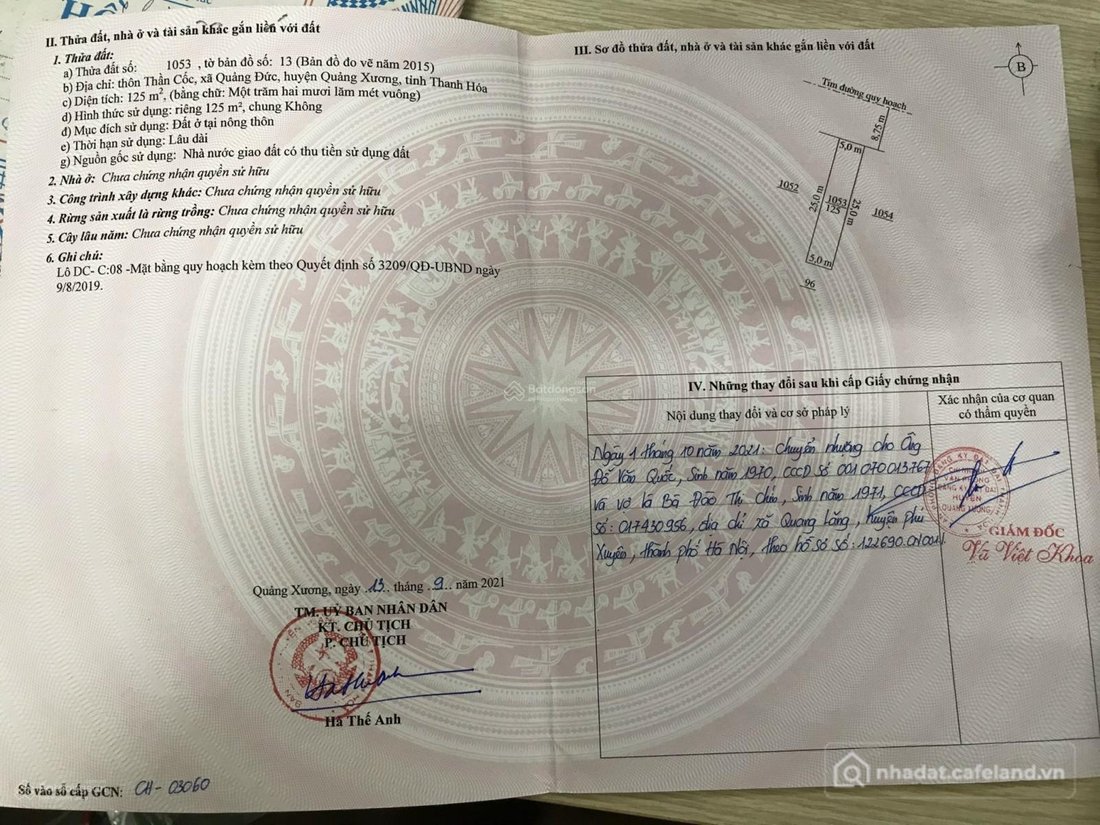 II. Thửa đất, nhà ở và tài sản khác gắn liền với đất
1. Thửa đất:
a) Thửa đất số: 1053 , tờ bản đồ số: 13 (Bản đồ đo vẽ năm 2015)
b) Địa chỉ: thôn Thần Cốc, xã Quảng Đức, huyện Quảng Xương, tỉnh Thanh Hóa
c) Diện tích: 125 m², (bằng chữ: Một trăm hai mươi lăm mét vuông)
d) Hình thức sử dụng: riêng 125 m², chung Không
đ) Mục đích sử dụng: Đất ở tại nông thôn
e) Thời hạn sử dụng: Lâu dài
g) Nguồn gốc sử dụng: Nhà nước giao đất có thu tiền sử dụng đất
2. Nhà ở: Chưa chứng nhận quyền sử hữu
3. Công trình xây dựng khác: Chưa chứng nhận quyền sử hữu
4. Rừng sản xuất là rừng trồng: Chưa chứng nhận quyền sử hữu
5. Cây lâu năm: Chưa chứng nhận quyền sử hữu
6. Ghi chú:
Lô DC- C:08 -Mặt bằng quy hoạch kèm theo Quyết định số 3209/QĐ-UBND ngày
9/8/2019.
Quảng Xương, ngày 13 tháng 9 năm 2021
TM. UỶ BAN NHÂN DÂN
KT. CHỦ TỊCH
P. CHỦ TỊCH
Hà Thế Anh
Số vào sổ cấp GCN: CH - 03060
III. Sơ đồ thửa đất, nhà ở và tài sản khác gắn liền với đất
B
Tim đường quy hoạch
8,75 m
5,0 m
1052
25,0 m
1053
125
25,0 m
1054
5,0 m
96
Batdongsan
IV. Những thay đổi sau khi cấp Giấy chứng nhận
Nội dung thay đổi và cơ sở pháp lý
Xác nhận của cơ quan
có thẩm quyền
Ngày 1 tháng 10 năm 2021: Chuyển nhượng cho Ông
Đỗ Văn Quốc, Sinh năm 1970, CCCD Số 001070013767
và vợ là Bà Đào Thị Chín, Sinh năm 1971, CCCD
số: 017430956, địa chỉ xã Quang Lãng, huyện Phú
Xuyên, thành phố Hà Nội, theo hồ sơ số: 122690.CN.001
VĂN PHÒNG
ĐĂNG KÝ ĐẤT ĐAI
HUYỆN
QUẢNG XƯƠNG
GIÁM ĐỐC
Vũ Việt Khoa
nhadat.cafeland.vn